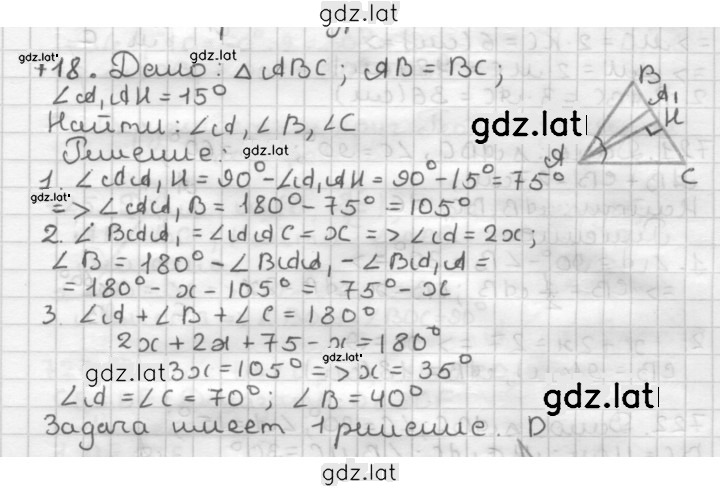 gdz.lat
gdz.lat
gdz.lat
718. Дано: △ ABC; AB = BC;
∠A₁AH = 15°
Найти: ∠A, ∠B, ∠C
gdz.lat
Решение:
gdz.lat
B
A₁
H
A
C
1. ∠AA₁H = 90° - ∠A₁AH = 90° - 15° = 75°
gdz.lat
=> ∠AA₁B = 180° - 75° = 105°
2. ∠BAA₁ = ∠A₁AC = x => ∠A = 2x;
∠B = 180° - ∠BAA₁ - ∠BA₁A =
= 180° - x - 105° = 75° - x
3. ∠A + ∠B + ∠C = 180°
2x + 2x + 75 - x = 180°
gdz.lat
gdz.lat
3x = 105° => x = 35°
∠A = ∠C = 70°; ∠B = 40°
gdz.lat
Задача имеет 1 решение.
gdz.lat